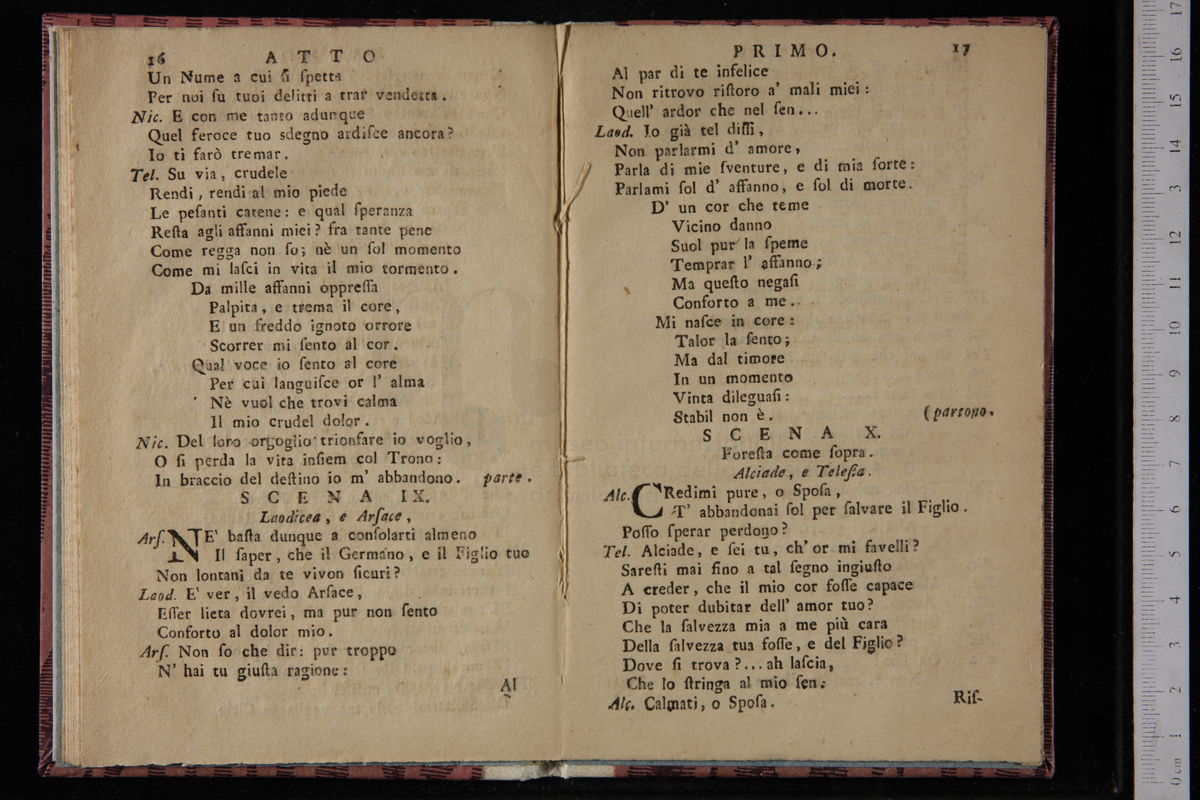 16 ATTO
Un Nume a cui ſi ſpetta
Per noi ſu tuoi delitti a trar vendetta.
Nic. E con me tanto adunque
Quel feroce tuo sdegno ardiſce ancora?
Io ti farò tremar.
Tel. Su via, crudele
Rendi, rendi al mio piede
Le peſanti catene: e qual ſperanza
Reſta agli affanni miei? fra tante pene
Come regga non ſo; nè un ſol momento
Come mi laſci in vita il mio tormento.
Da mille affanni oppreſſa
Palpita, e trema il core,
E un freddo ignoto orrore
Scorrer mi ſento al cor.
Qual voce io ſento al core
Per cui languiſce or l' alma
Nè vuol che trovi calma
Il mio crudel dolor.
Nic. Del loro orgoglio trionfare io voglio,
O ſi perda la vita inſiem col Trono:
In braccio del deſtino io m' abbandono. parte.
SCENA IX.
Laodicea, e Arſace,
Arſ. NE' baſta dunque a conſolarti almeno
Il ſaper, che il Germano, e il Figlio tuo
Non lontani da te vivon ſicuri?
Laod. E' ver, il vedo Arſace,
Eſſer lieta dovrei, ma pur non ſento
Conforto al dolor mio.
Arſ. Non ſo che dir: pur troppo
N' hai tu giuſta ragione:
Al
PRIMO. 17
Al par di te infelice
Non ritrovo riſtoro a' mali miei:
Quell' ardor che nel ſen...
Laod. Io già tel diſſi,
Non parlarmi d' amore,
Parla di mie ſventure, e di mia ſorte:
Parlami ſol d' affanno, e ſol di morte.
D' un cor che teme
Vicino danno
Suol pur la ſpeme
Temprar l' affanno;
Ma queſto negaſi
Conforto a me.
Mi naſce in core:
Talor la ſento;
Ma dal timore
In un momento
Vinta dileguaſi:
Stabil non è. (partono.
SCENA X.
Foreſta come ſopra.
Alciade, e Teleſia.
Alc. CRedimi pure, o Spoſa,
T' abbandonai ſol per ſalvare il Figlio.
Poſſo ſperar perdono?
Tel. Alciade, e ſei tu, ch' or mi favelli?
Sareſti mai fino a tal ſegno ingiuſto
A creder, che il mio cor foſſe capace
Di poter dubitar dell' amor tuo?
Che la ſalvezza mia a me più cara
Della ſalvezza tua foſſe, e del Figlio?
Dove ſi trova?... ah laſcia,
Che lo ſtringa al mio ſen:
Alc. Calmati, o Spoſa.
Riſ-